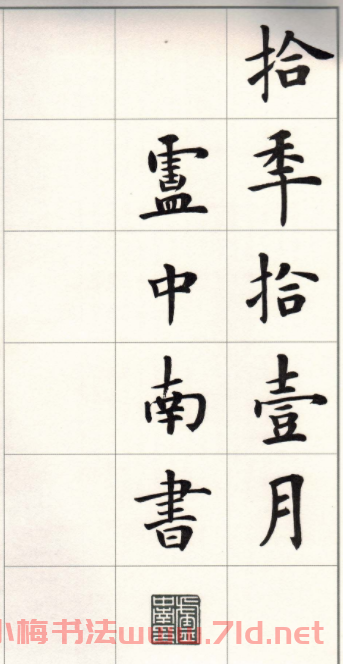 拾秊拾壹月
盧中南書
小梅书法www.7ld.net